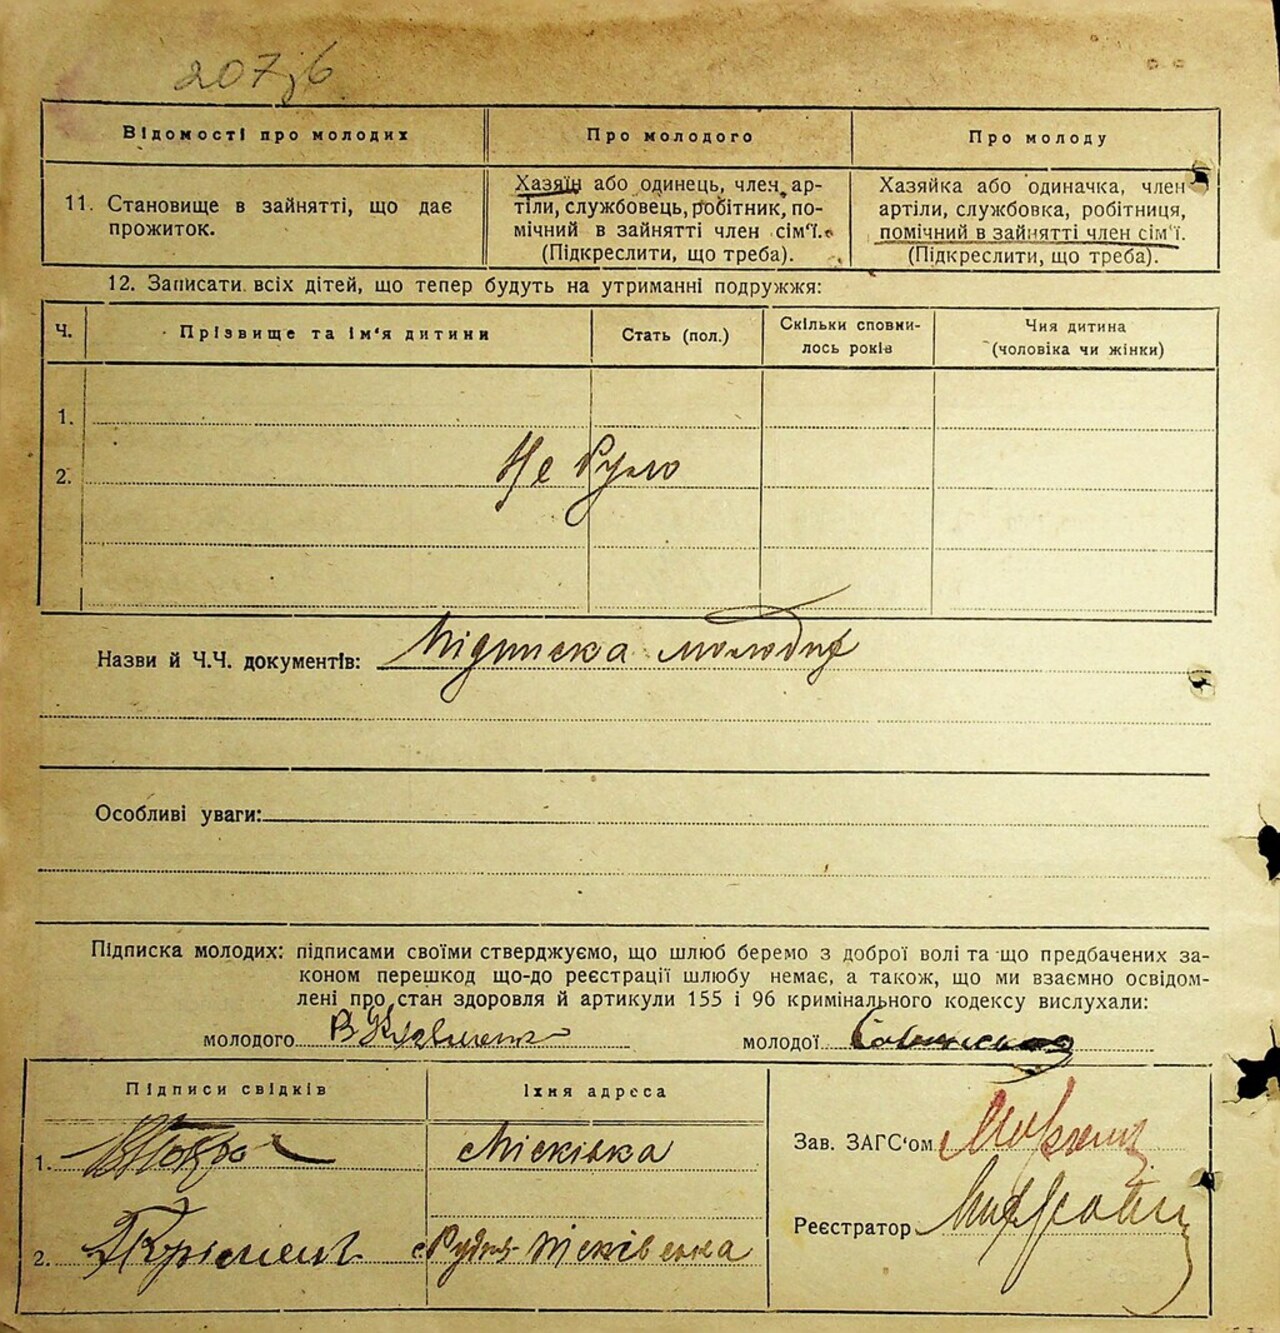 207
Відомості про молодих
Про молодого
Про молоду
11. Становище в зайнятті, що дає
прожиток.
Хазяїн або одинець, член ар-
тілі, службовець, робітник, по-
мічний в зайнятті член сім'ї.
(Підкреслити, що треба).
Хазяйка або одиначка, член
артіли, службовка, робітниця,
помічний в зайнятті член сім'ї.
(Підкреслити, що треба).
12. Записати всіх дітей, що тепер будуть на утриманні подружжя:
Ч.
Прізвище та ім'я дитини
Стать (пол.)
Скільки сповни-
лось років
Чия дитина
(чоловіка чи жінки)
1.
2.
Не було
Назви й Ч.Ч. документів: Підписка молодих
Особливі уваги:
Підписка молодих: підписами своїми стверджуємо, що шлюб беремо з доброї волі та що предбачених за-
коном перешкод що-до реєстрації шлюбу немає, а також, що ми взаємно освідом-
лені про стан здоровля й артикули 155 і 96 кримінального кодексу вислухали:
молодого
молодої
Підписи свідків
Їхня адреса
1.
2.
Рудня
Зав. ЗАГС'ом
Реєстратор